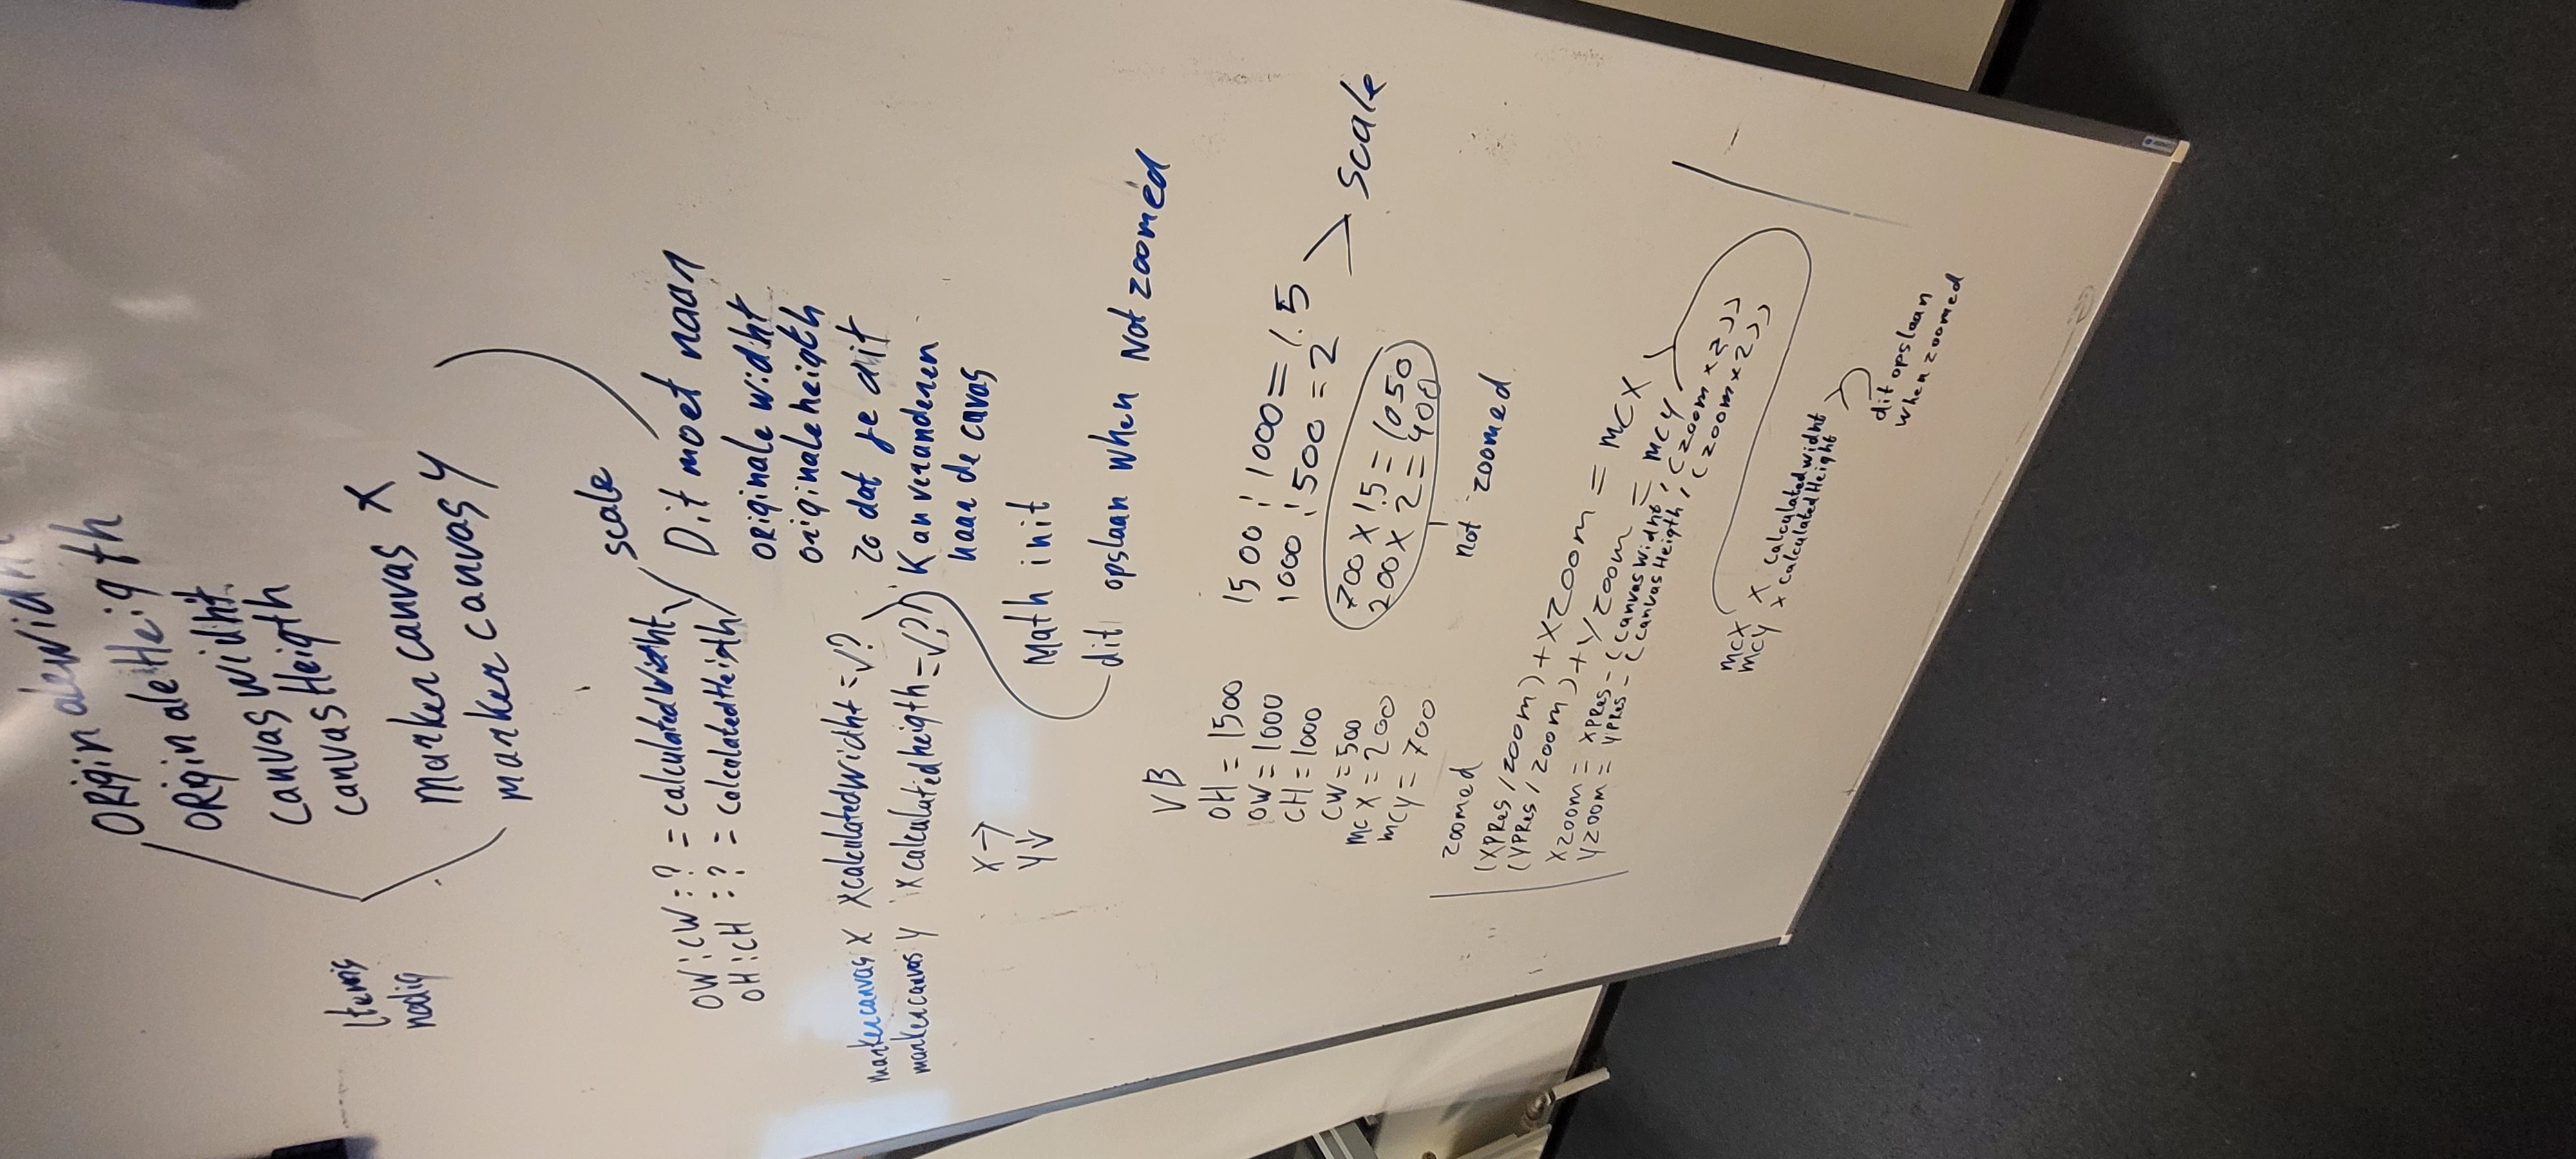 originalewidht
originaleHeigth
canvas widht
canvasHeigth
Items
nodig
Marker canvas X
marker canvas y
scale
OW:CW = ? = calculatedWidht
OH:CH = ? = calculatedHeigth
Dit moet naar
originale widht
originale heigth
zo dat je dit
Kan veranderen
naar de cavas
markercanvas X x calculatedwidht = √?
markercanvas y x calculated heigth = √?
X →
Y ↓
Math init
dit opslaan when Not zoomed
VB
OH = 1500
OW = 1000
CH = 1000
CW = 500
mc X = 200
mcy = 700
1500 : 1000 = 1.5
1000 : 500 = 2
scale
700 X 1.5 = 1050
200 X 2 = 400
not zoomed
zoomed
(XPRes / zoom) + XZoom = mcX
(YPRes / zoom) + Yzoom = mcy
Xzoom = XPRes - (canvas Widht / (zoom x 2))
Yzoom = YPRes - (canvas Heigth / (zoom x 2))
mcX x calculatedwidht
mcy x calculatedHeight
dit opslaan
when zoomed